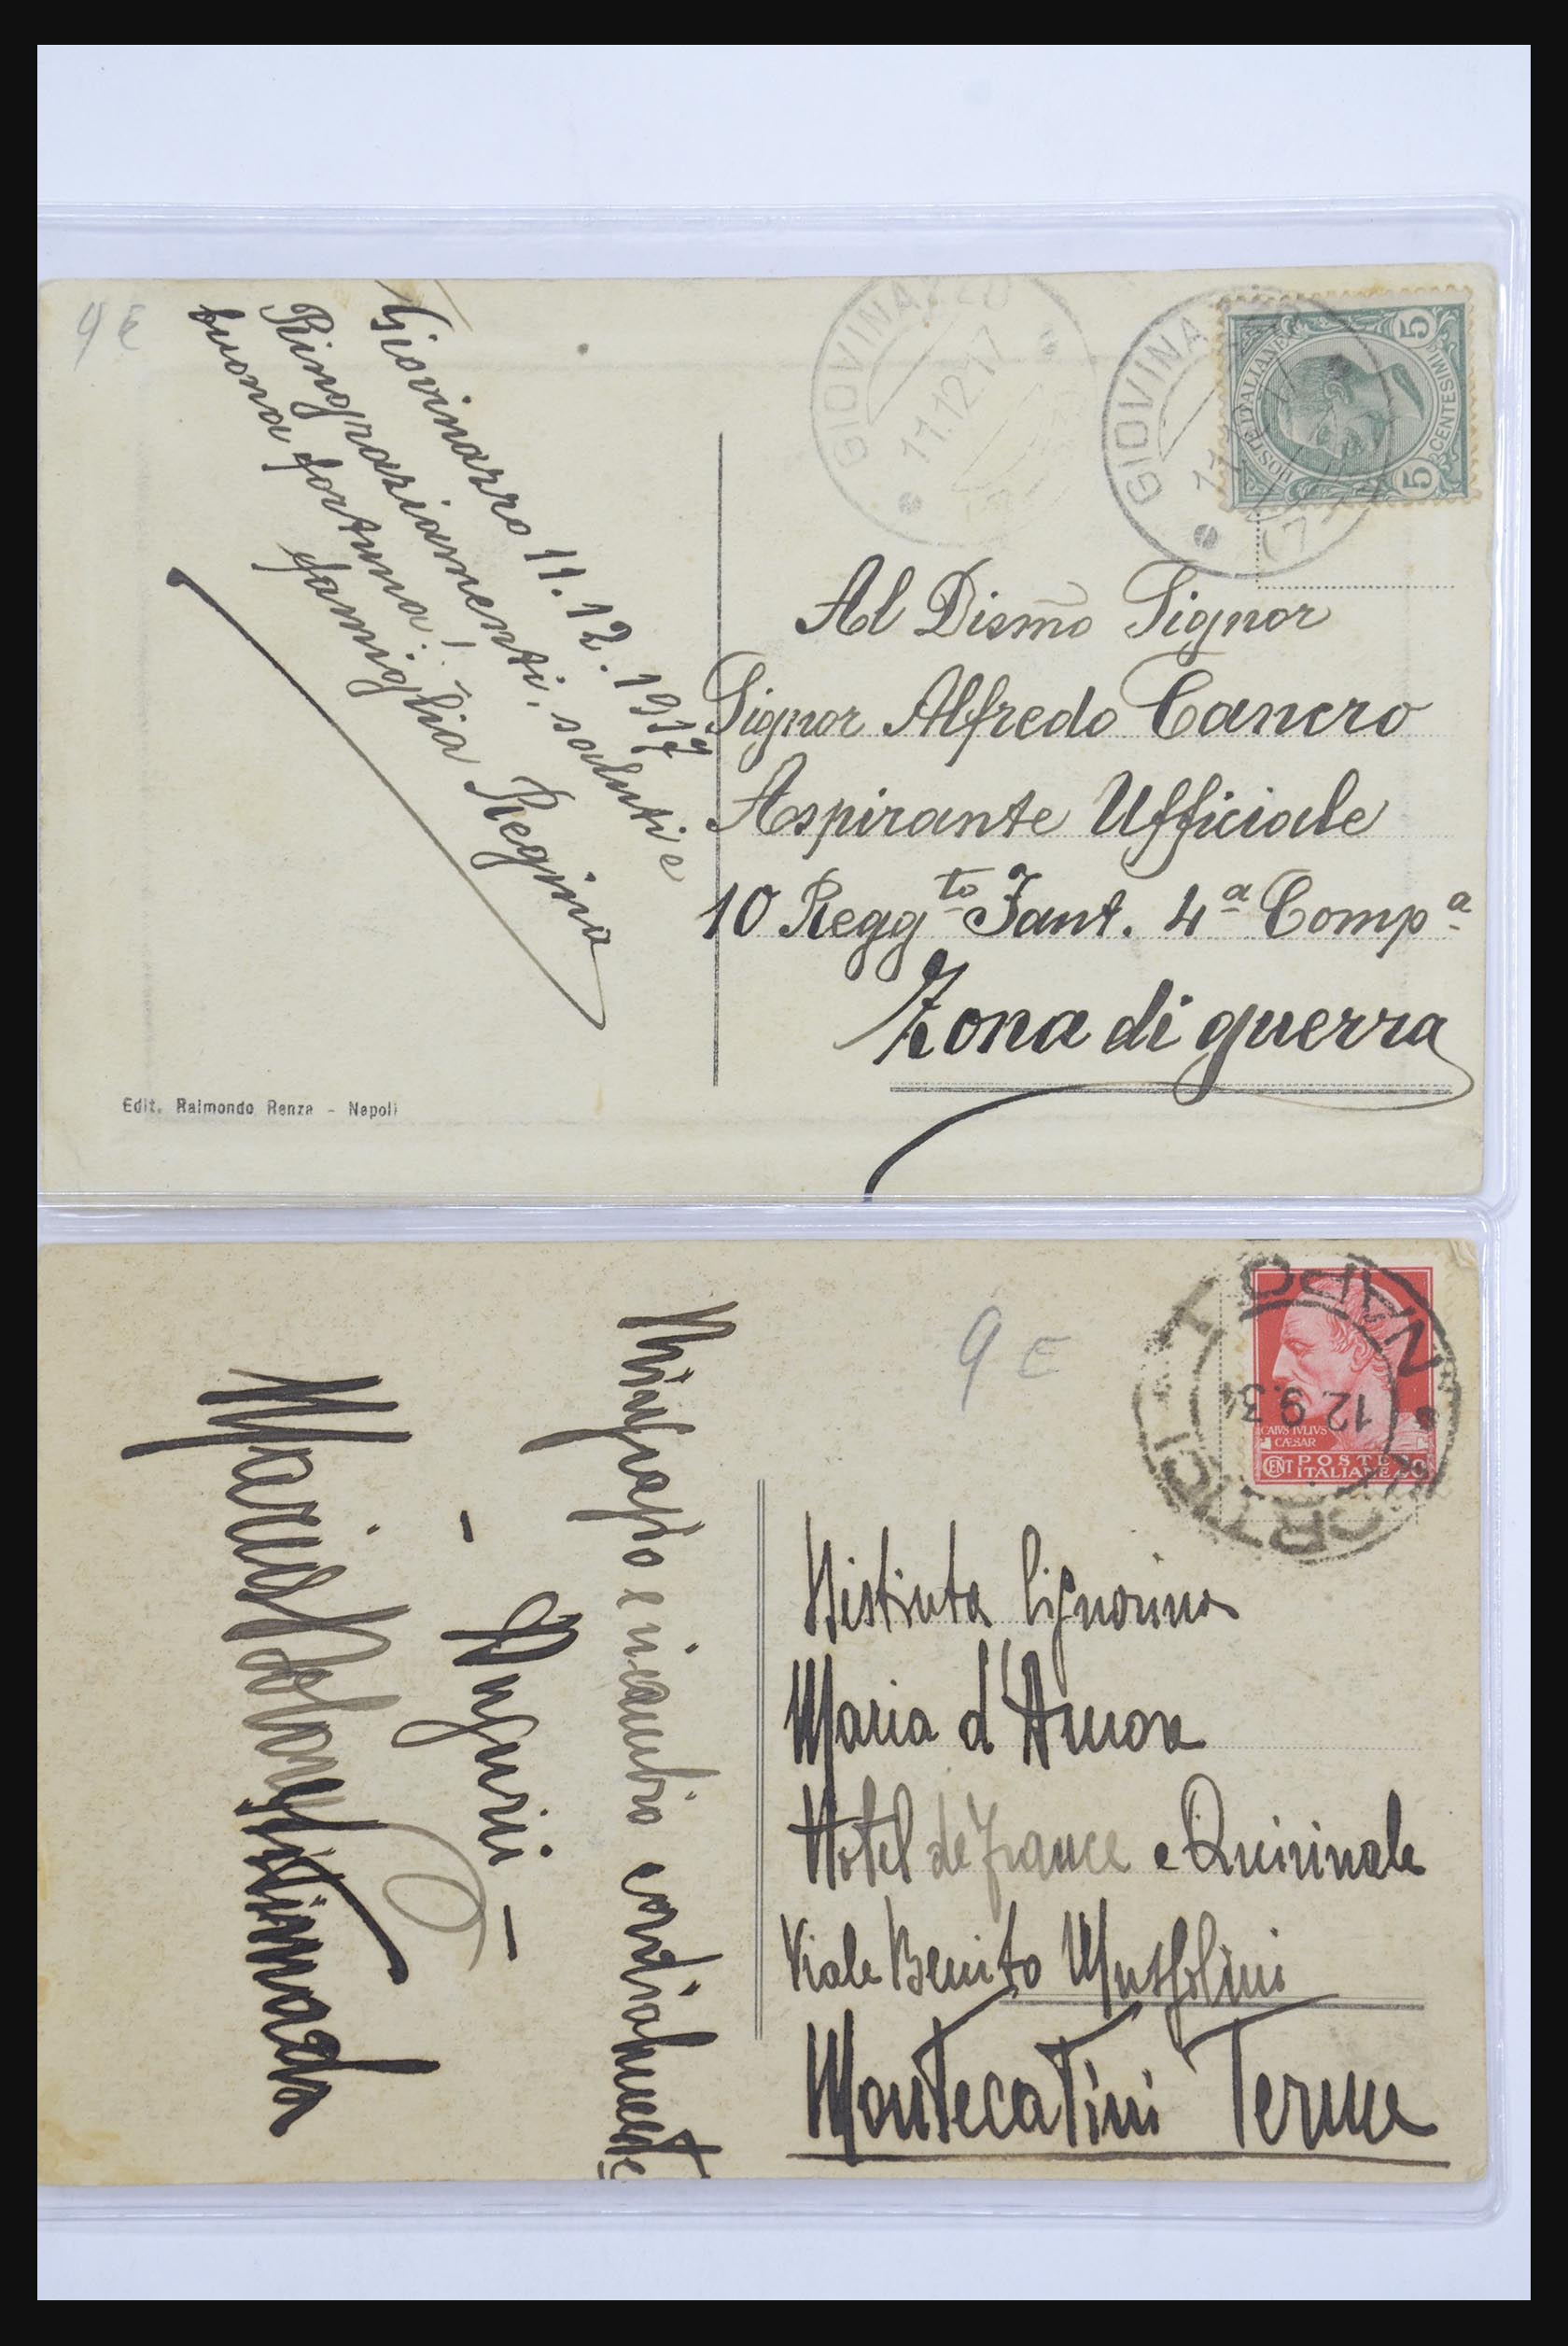 9 E
Giovinazzo 11.12.1917
Ringraziamenti, saluti e
buona fortuna!
famiglia Regina
Edit. Raimondo Renza - Napoli
GIOVINAZZO
11.12.17
GIOVINA
5 5
POSTE ITALIANE
CENTESIMI
Al Dismo Signor
Signor Alfredo Cancro
Aspirante Ufficiale
10 Reggto Fant. 4a Compa
Zona di guerra
9 E
NAPOLI
PORTICI
12.9.34
CAIVS IVLIVS
CÆSAR
CENT POSTE
ITALIANE 20
Distinta Signorina
Maria d'Amore
Hotel de France e Quirinale
Viale Benito Mussolini
Montecatini Terme
Ringrazio e ricambio cordialmente
- Auguri -
Maria